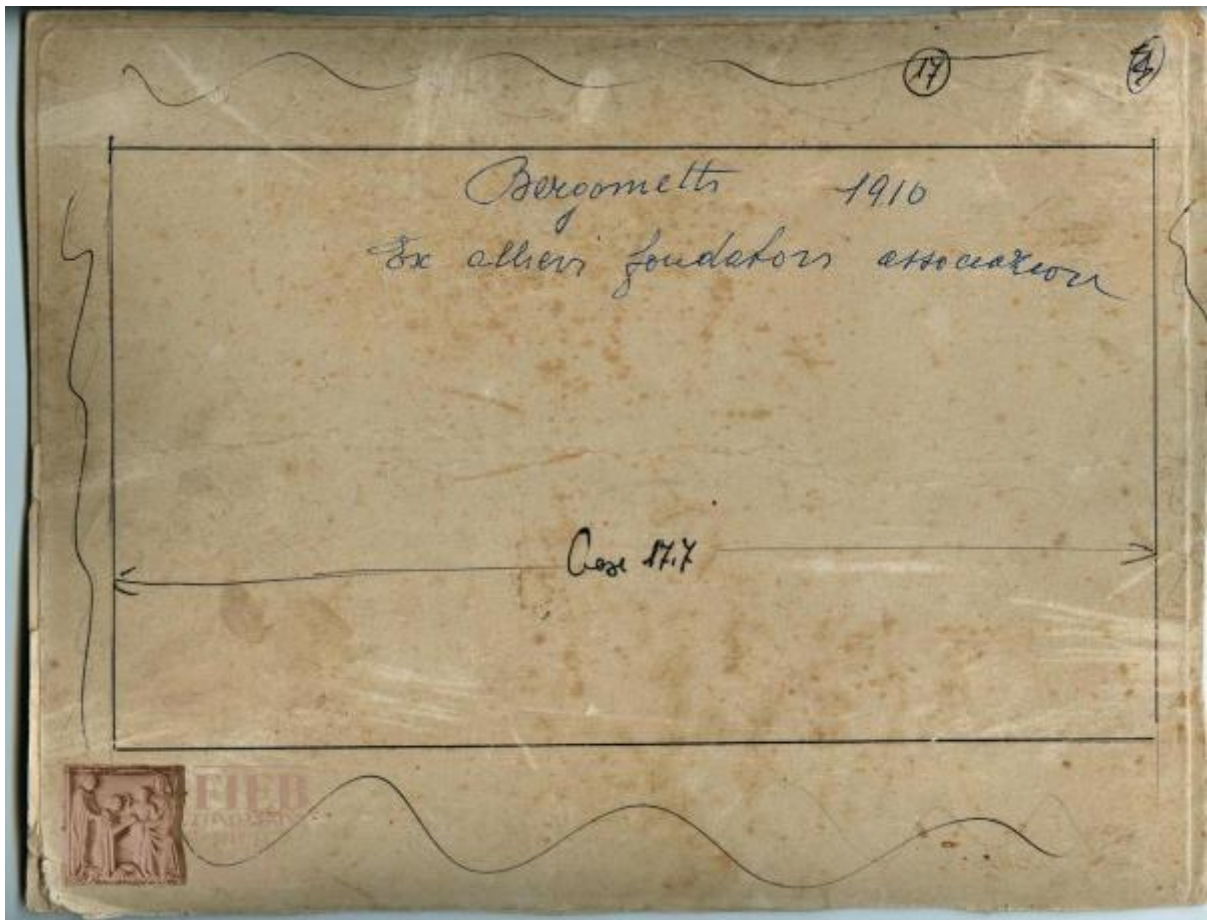 17
Bergometti 1910
Ex allievi fondatori associazione
17.7
FIEB